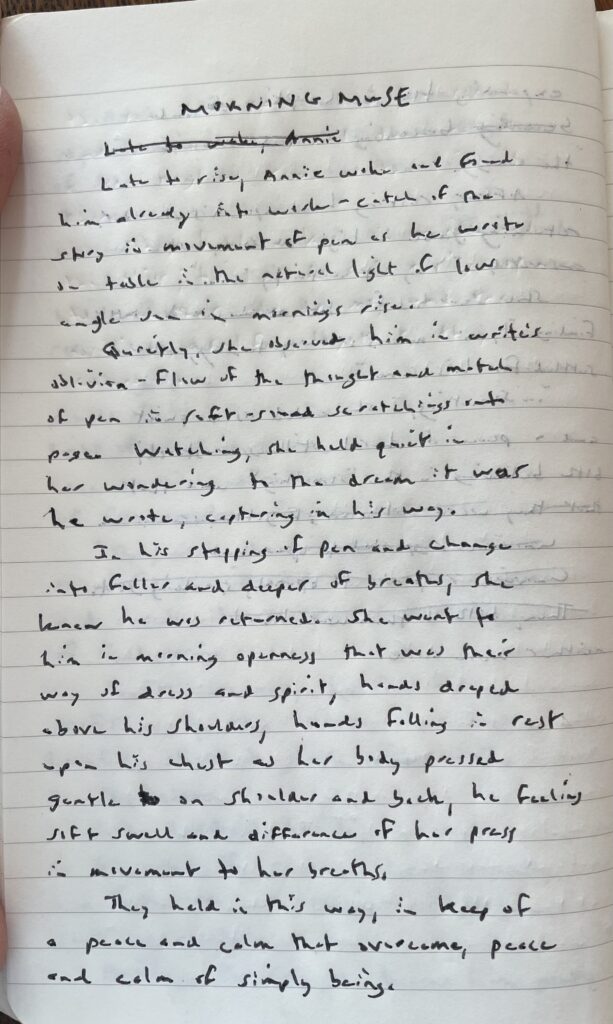 MORNING MUSE
Late to wake, Annie
Late to rise, Annie woke and found
him already into work - catch of the
story in movement of pen as he wrote
on table in the natural light of low
angle sun in morning's rise.
Quietly, she observed him in writer's
oblivion - flow of the thought and match
of pen in soft-sound scratchings onto
pages. Watching, she held quiet in
her wondering to the dream it was
he wrote, capturing in his way.
In his stopping of pen and change
into fuller and deeper of breaths, she
knew he was returned. She went to
him in morning openness that was their
way of dress and spirit, hands draped
above his shoulders, hands falling in rest
upon his chest as her body pressed
gentle on shoulder and back, he feeling
soft swell and difference of her press
in movement to her breaths.
They held in this way, in keep of
a peace and calm that overcame, peace
and calm of simply being.